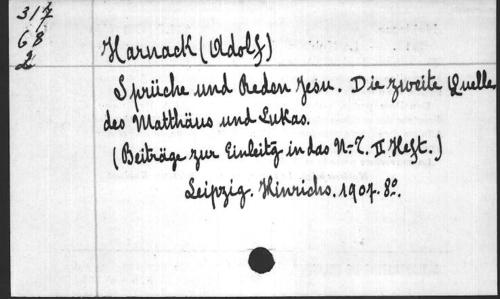 317
68
2
Harnack (Adolf)
Sprüche und Reden Jesu. Die zweite Quelle
des Matthäus und Lukas.
(Beiträge zur Einleitg in das N-T. II Heft.)
Leipzig. Hinrichs. 1907. 8º.